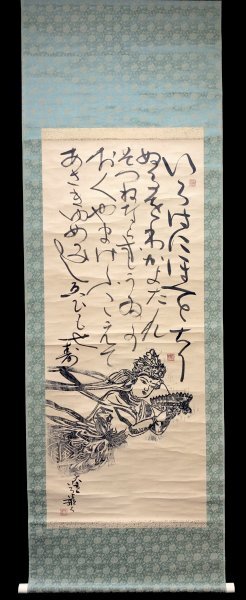 いろはにほへとちり
ぬるをわかよたれ
そつねならむうゐの
おくやまけふこえて
あさきゆめみしゑひもせ寿